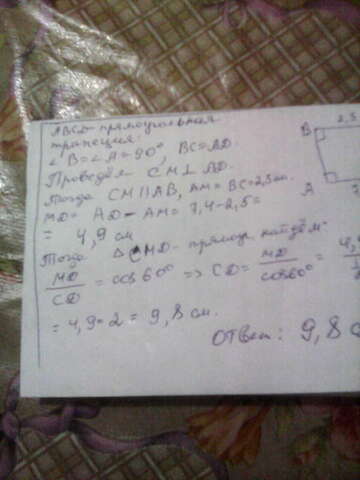 ABCD - прямоугольная
трапеция:
∠B=∠A=90°, BC=AD.
Проведём CM⊥AD.
Тогда CM||AB, AM=BC=2,5см.
MD= AD-AM=7,4-2,5=
= 4,9 см
Тогда △CMD- прямоуг. найдём
MD/CD = cos60° => CD= MD/cos60° = 4,9
= 4,9·2 = 9,8 см.
Ответ: 9,8 с
2,5
B
A